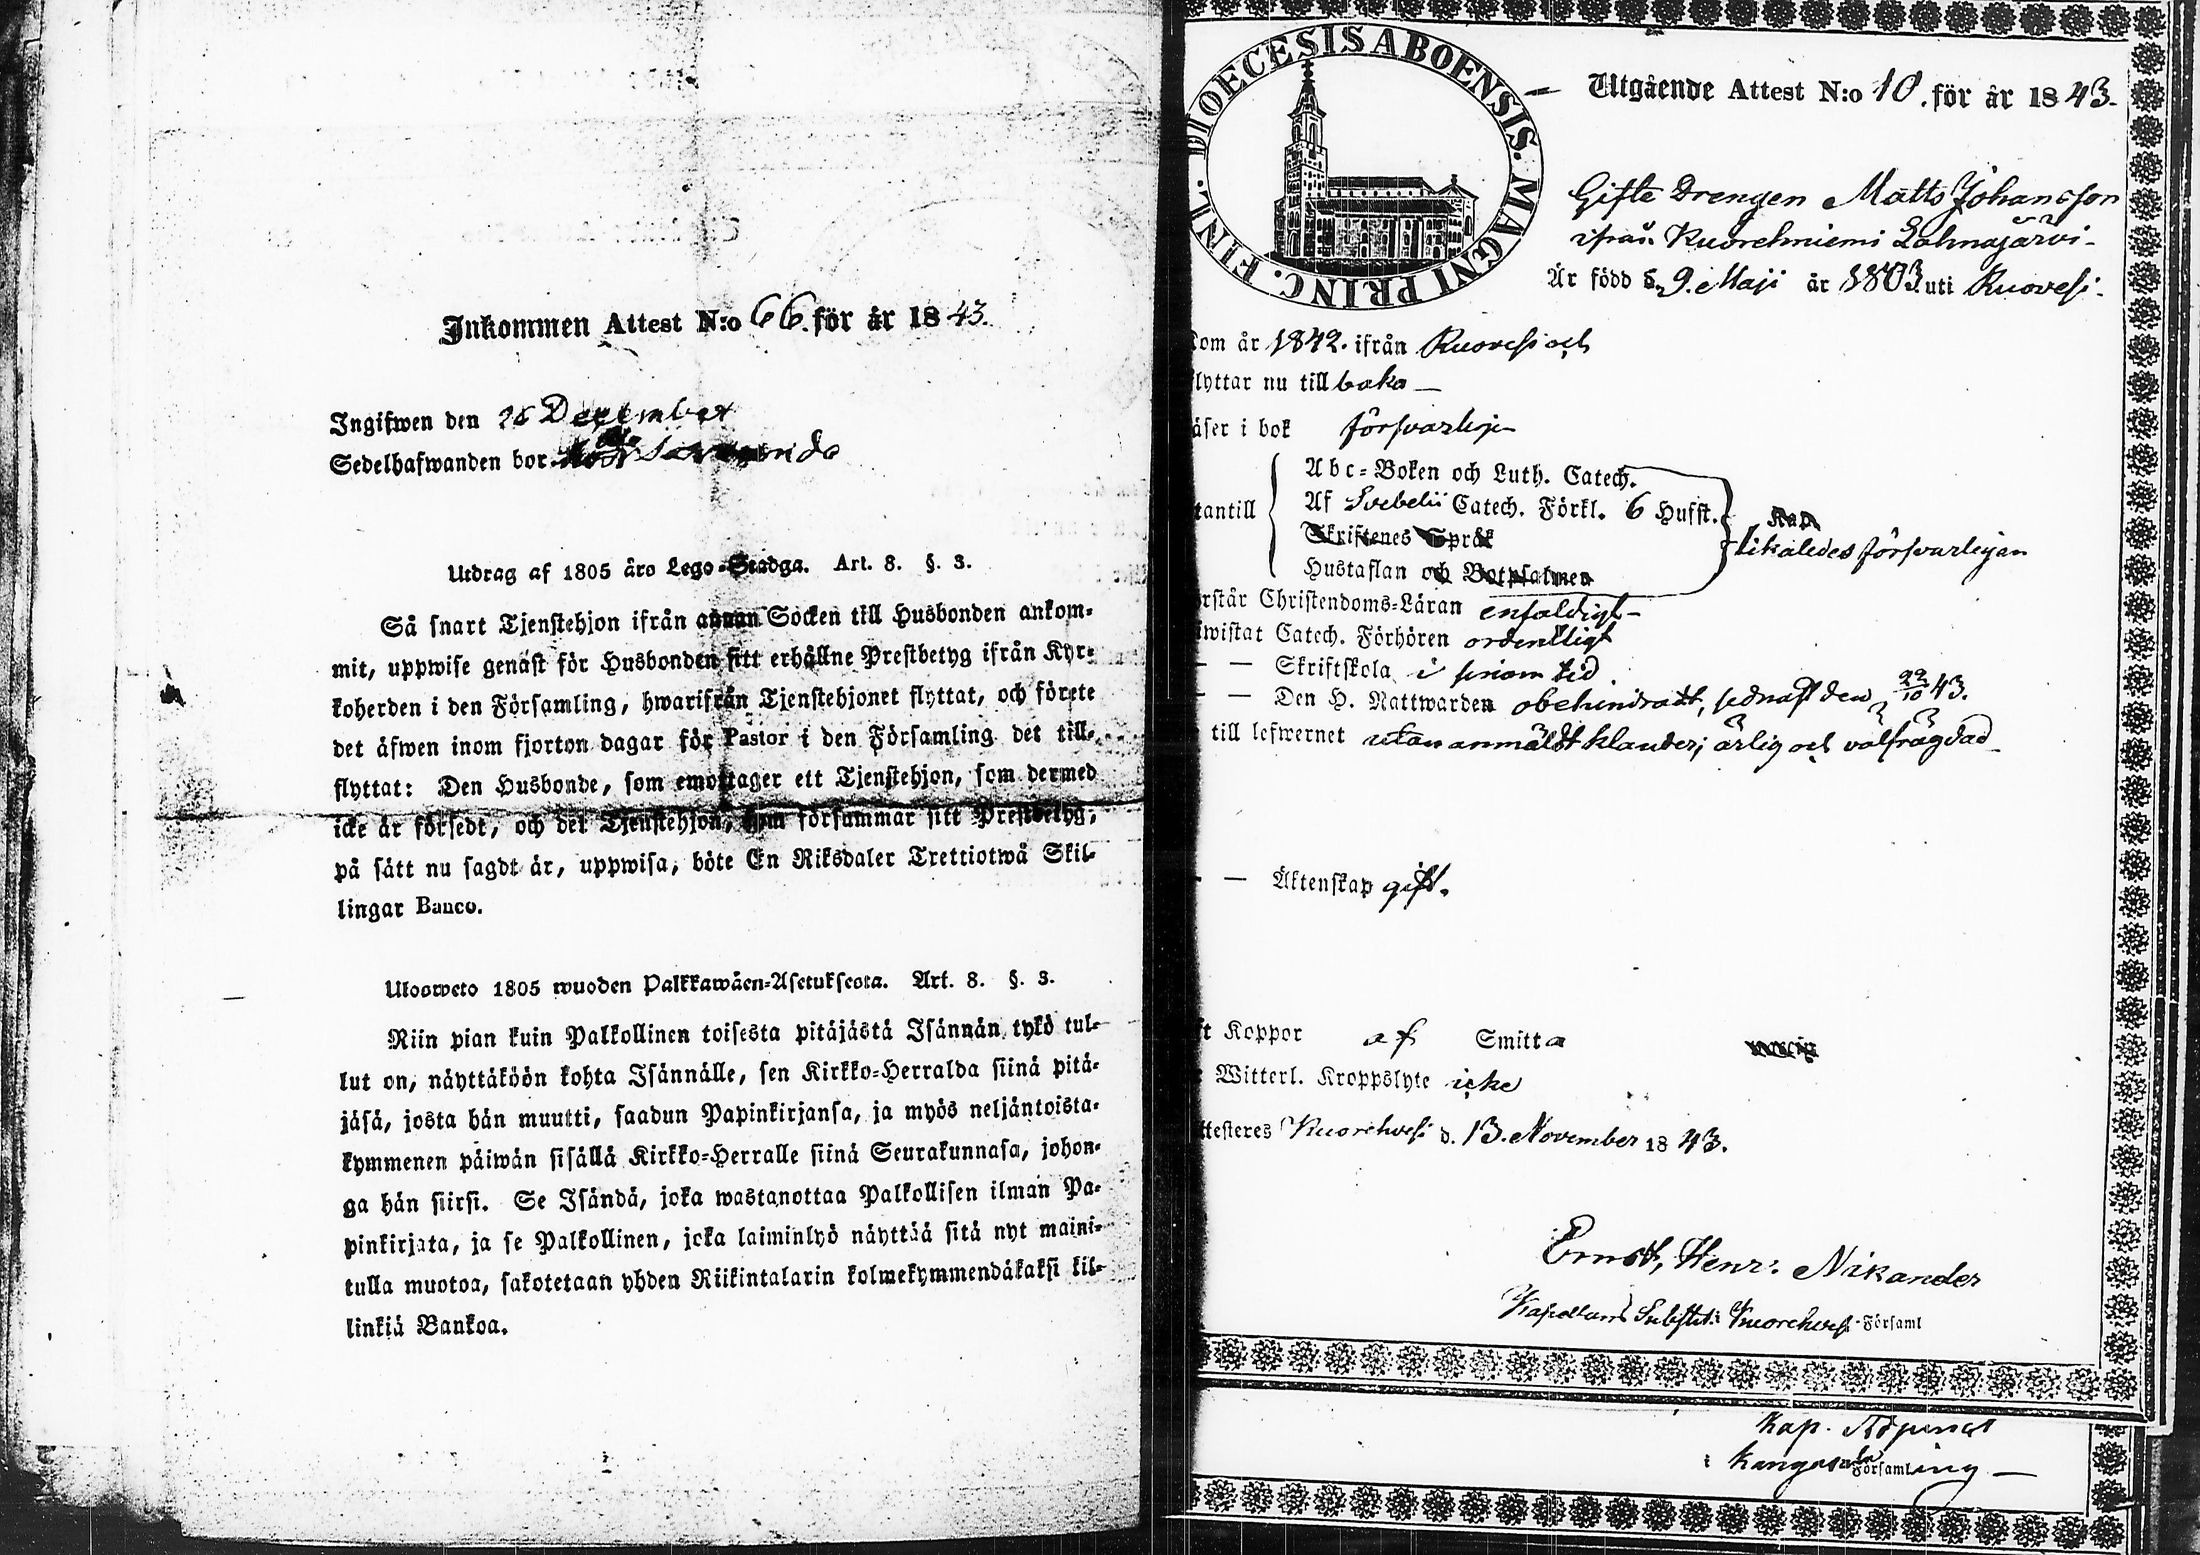 Inkommen Attest N:o 66. för år 1843.
Ingifwen den 26 December
Sedelhafwanden bor
Utdrag af 1805 års Lego-Stadga. Art. 8. §. 3.
Så snart Tjenstehjon ifrån annan Socken till Husbonden ankom-
mit, uppwise genast för Husbonden sitt erhållne Prestbetyg ifrån Kyr-
koherden i den Församling, hwarifrån Tjenstehjonet flyttat, och förete
det äfwen inom fjorton dagar för Pastor i den Församling det till-
flyttat: Den Husbonde, som emottager ett Tjenstehjon, som dermed
icke är försedt, och det Tjenstehjon, som försummar sitt Prestbetyg,
på sätt nu sagdt är, uppwisa, böte En Riksdaler Trettiotwå Skil-
lingar Banco.
Ulosweto 1805 wuoden Palkkawäen-Asetuksesta. Art. 8. §. 3.
Niin pian kuin Palkollinen toisesta pitäjästä Isännän tykö tul-
lut on, näyttäköön kohta Isännälle, sen Kirkko-Herralda siinä pitä-
jäsä, josta hän muutti, saadun Papinkirjansa, ja myös neljäntoista-
kymmenen päiwän sisällä Kirkko-Herralle siinä Seurakunnasa, johon-
ga hän siirsi. Se Isändä, joka wastanottaa Palkollisen ilman Pa-
pinkirjata, ja se Palkollinen, joka laiminlyö näyttää sitä nyt maini-
tulla muotoa, sakotetaan yhden Riikintalarin kolmekymmendäkaksi kil-
linkiä Bankoa.
DIOECESIS ABOENSIS. MAGNI PRINC. FINL.
Utgående Attest N:o 10. för år 1843.
Gifte Drengen Matts Johansson
ifrån Kuorehniemi Lahnajärvi
Är född d. 9. Maji år 1803. uti Ruovesi.
kom år 1842. ifrån Ruovesi och
flyttar nu till baka
läser i bok försvarligen
Abc-Boken och Luth. Catech.
utantill Af Svebelii Catech. Förkl. 6 Hufst. likaledes försvarligen
Skriftenes Språk
Hustaflan och Botpsalmen
förstår Christendoms-Läran enfaldigt
biwistat Catech. Förhören ordentligt
— — Skriftskola i sinom tid.
— — Den H. Nattwarden obehindradt, sednast den 22/10 43.
till lefwernet utan anmäldt klander; ärlig och välfrägdad
— — Äktenskap gift.
haft Koppor af Smitta
Witterl. Kroppslyte icke
Attesteres Kuorehvesi d. 13. November 1843.
Ernst Henr. Nikander
Kapellans Substit: i Kuorehvesi Församl
Kap. Adjunct
i Kangasala Församling